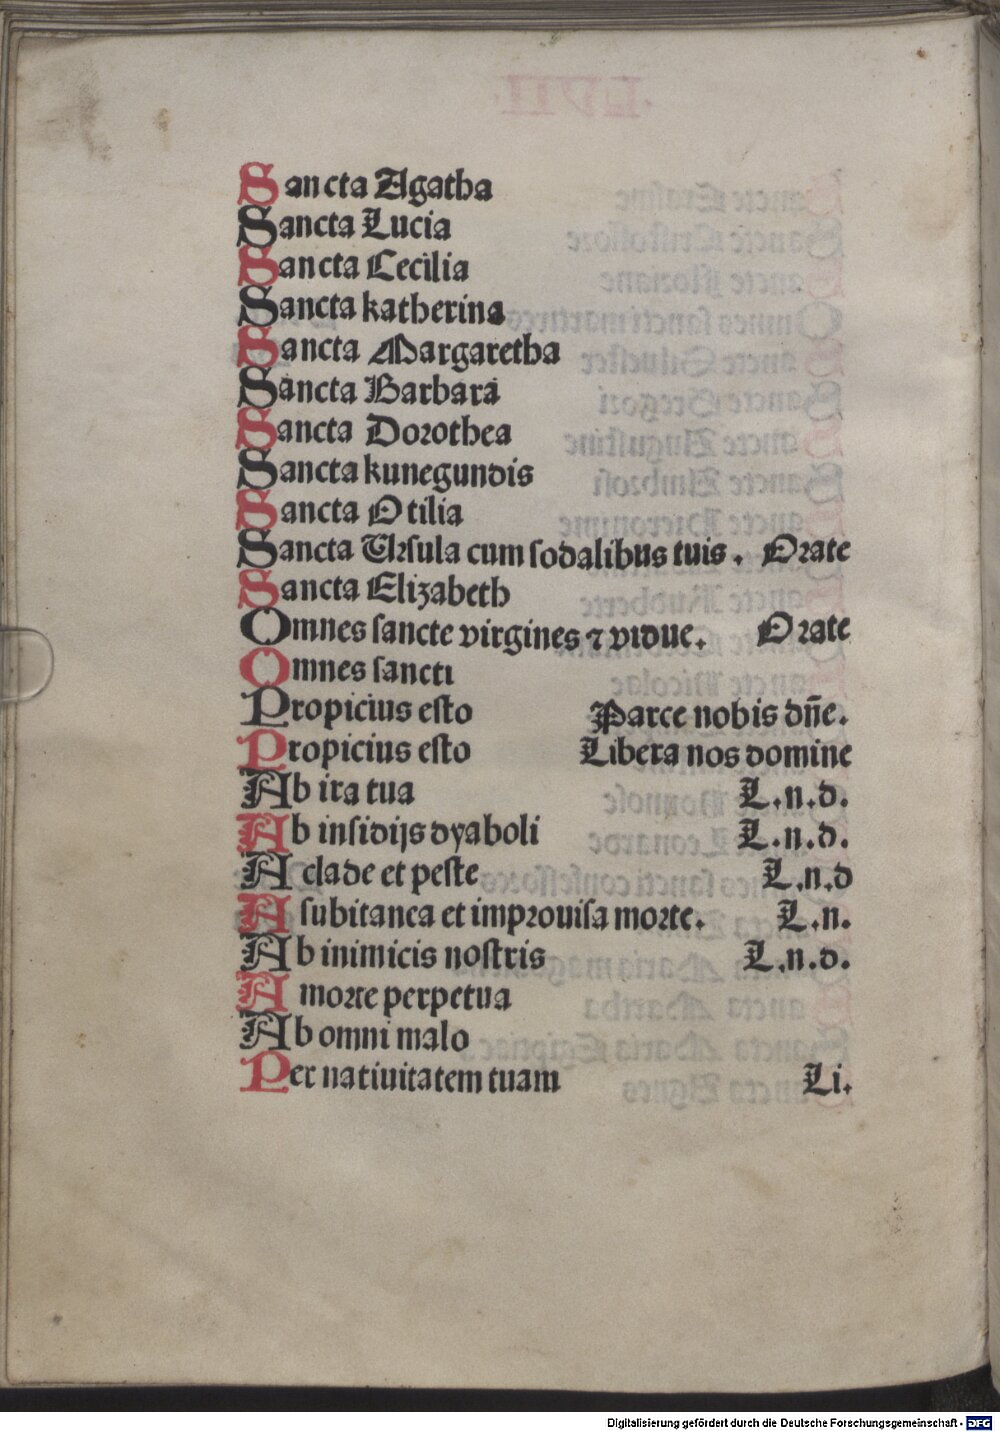 Sancta Agatha
Sancta Lucia
Sancta Cecilia
Sancta katherina
Sancta Margaretha
Sancta Barbara
Sancta Dorothea
Sancta kunegundis
Sancta Otilia
Sancta Ursula cum sodalibus tuis. Orate
Sancta Elizabeth
Omnes sancte virgines ⁊ vidue. Orate
Omnes sancti
Propicius esto Parce nobis dn̄e.
Propicius esto Libera nos domine
Ab ira tua L.n.d.
Ab insidijs dyaboli L.n.d.
A clade et peste L.n.d
A subitanea et improuisa morte. L.n.
Ab inimicis nostris L.n.d.
A morte perpetua
Ab omni malo
Per natiuitatem tuam Li.
Digitalisierung gefördert durch die Deutsche Forschungsgemeinschaft - DFG